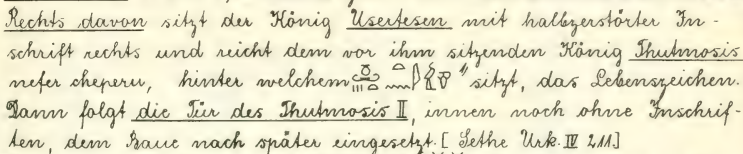 Rechts davon sitzt der König Usertesen mit halbzerstörter In-
schrift rechts und reicht dem vor ihm sitzenden König Thutmosis
nefer cheperu, hinter welchem " sitzt, das Lebenszeichen.
Dann folgt die Tür des Thutmosis II, innen noch ohne Inschrif-
ten, dem Baue nach später eingesetzt. [Sethe Urk. IV 211.]